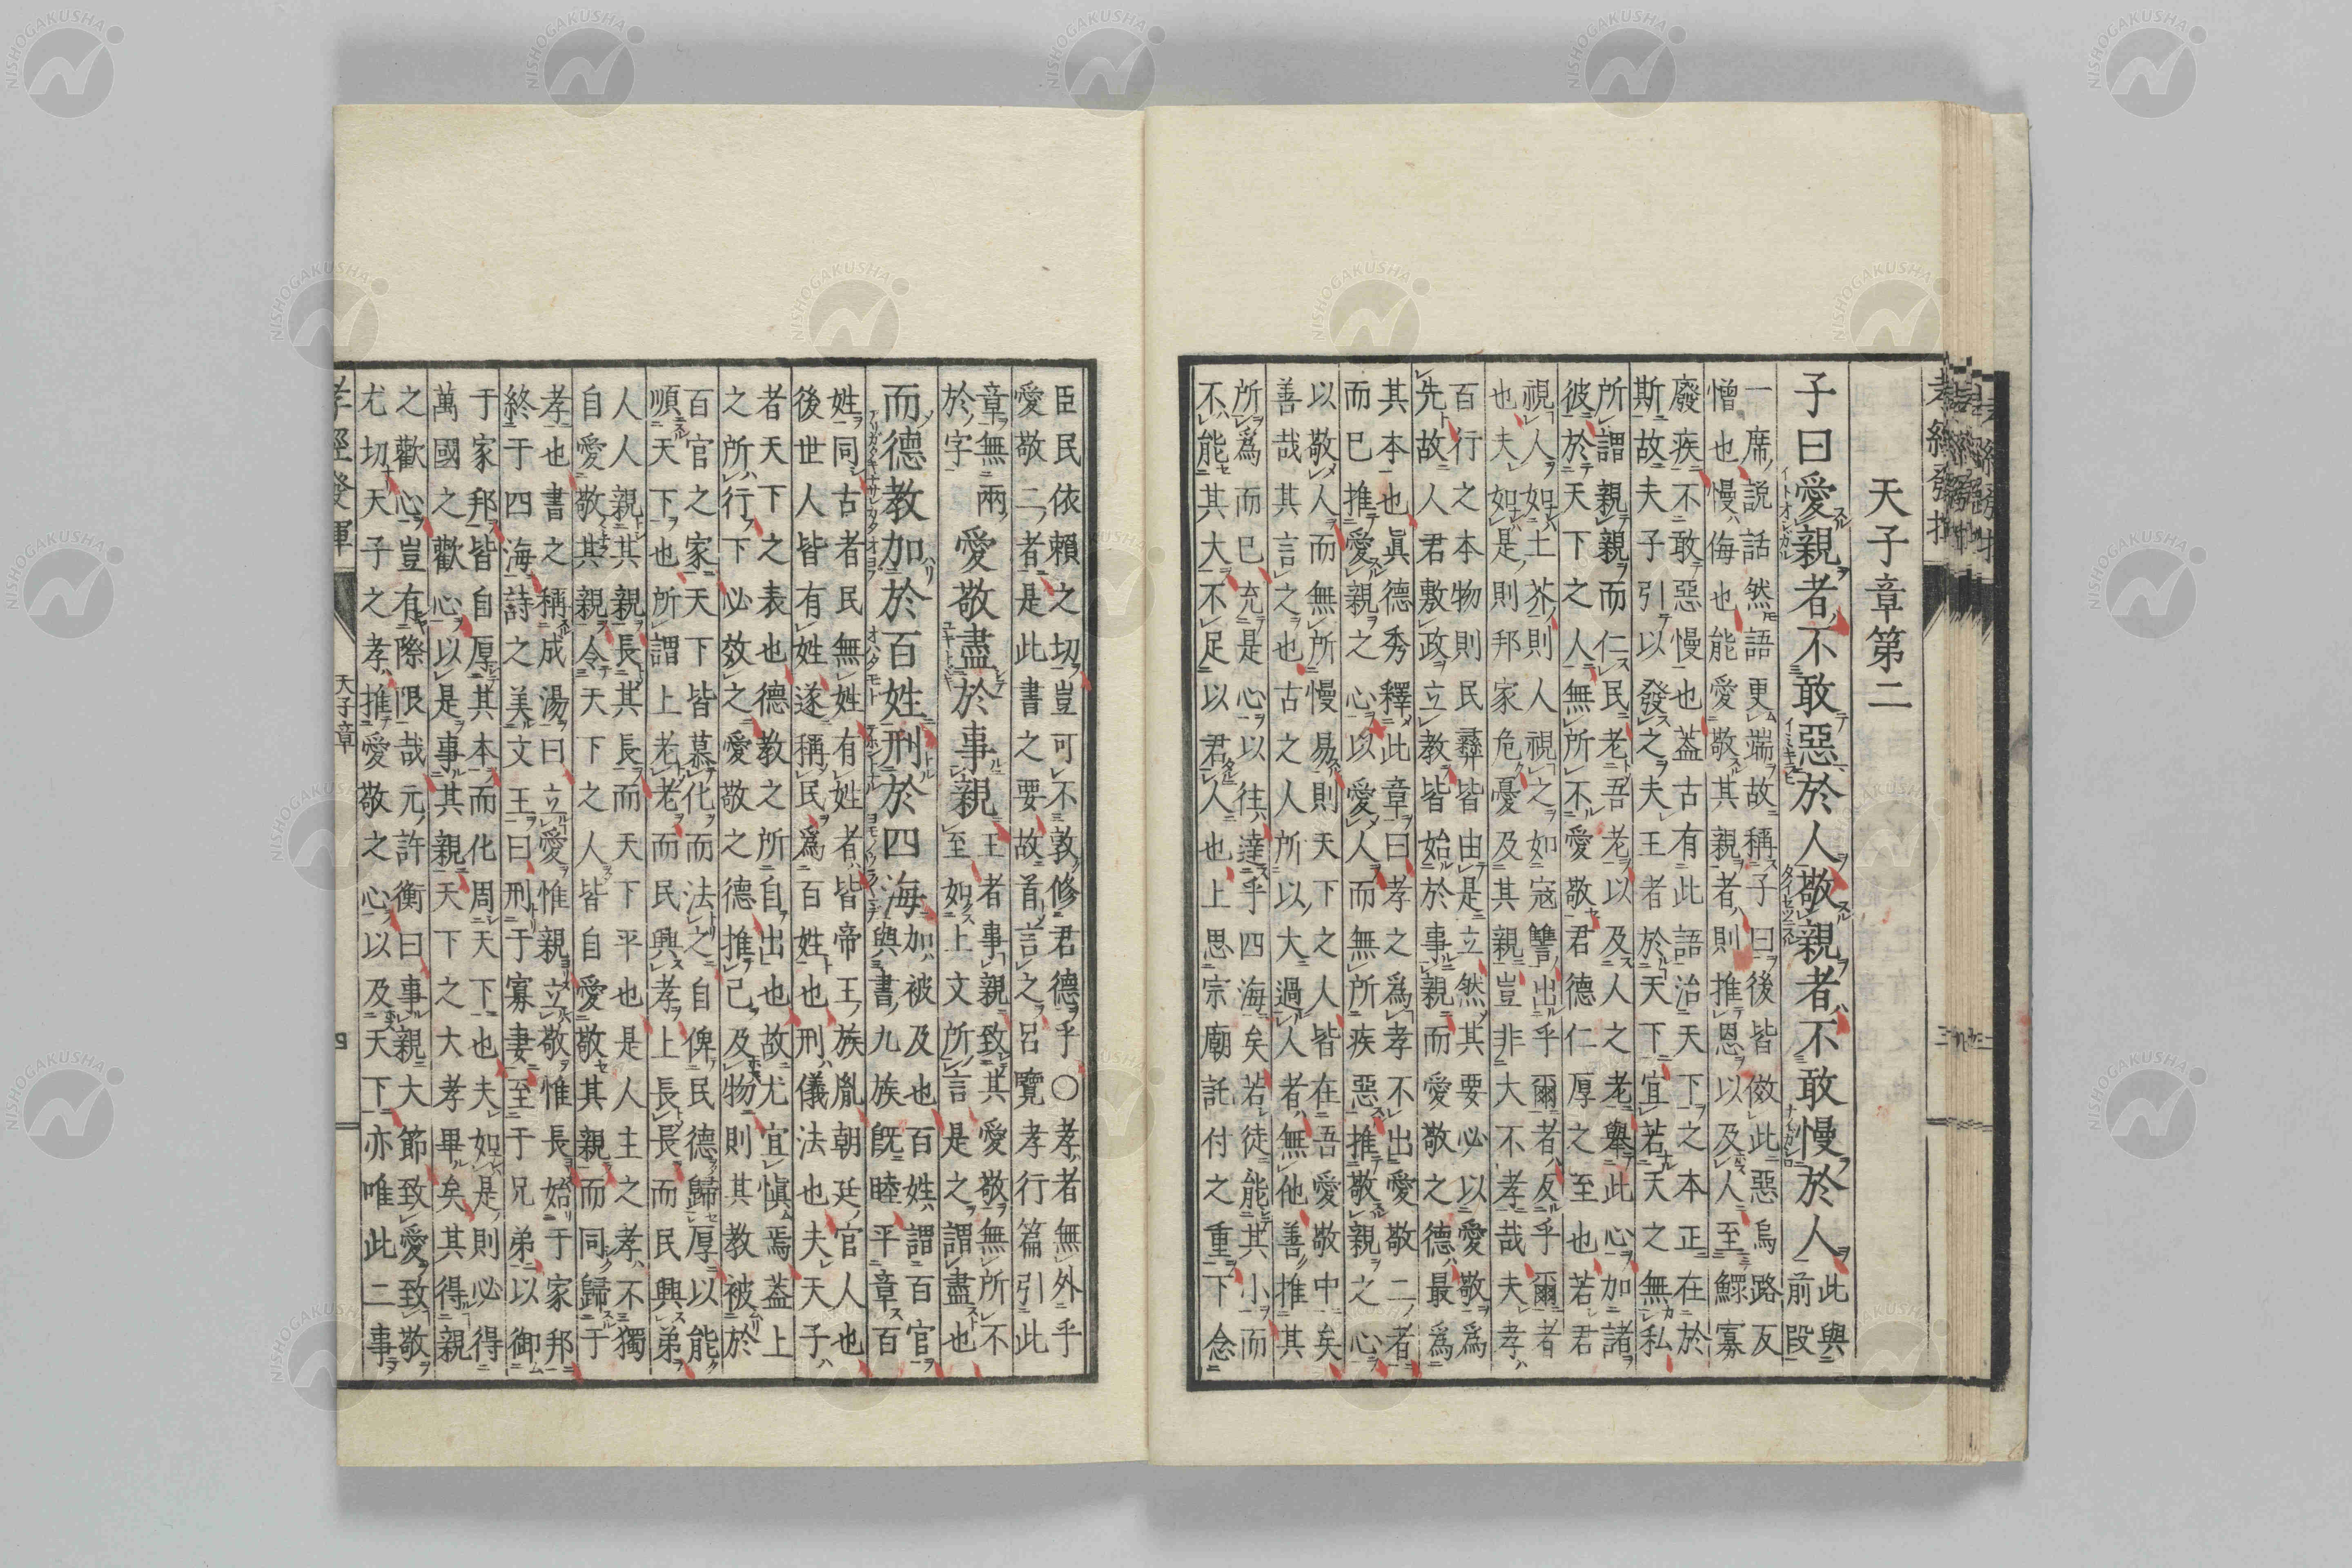 天子章第二
子曰愛親者不敢惡於人敬親者不敢慢於人此與
前段
一席說話然語更端故稱子曰後皆倣此惡烏路反
憎也慢侮也能愛敬其親者則推恩以及人至鰥寡
廢疾不敢惡慢也蓋古有此語治天下之本正在於
斯故夫子引以發之夫王者於天下宜若天之無私
所謂親親而仁民老吾老以及人之老舉此心加諸
彼於天下之人無所不愛敬君德仁厚之至也若君
視人如土芥則人視之如寇讐出乎爾者反乎爾者
也夫如是則邦家危憂及其親豈非大不孝哉夫孝
百行之本物則民彝皆由是立然其要必以愛敬爲
先故人君敷政立教皆始於事親而愛敬之德最爲
其本也眞德秀釋此章曰孝之爲孝不出愛敬二者
而已推愛親之心以愛人而無所疾惡推敬親之心
以敬人而無所慢易則天下之人皆在吾愛敬中矣
善哉其言之也古之人所以大過人者無他善推其
所爲而已充是心以往達乎四海矣若徒能其小而
不能其大不足以君人也上思宗廟託付之重下念
臣民依賴之切豈可不敦修君德乎○孝者無外乎
愛敬二者是此書之要故首言之呂覽孝行篇引此
章無兩
於字
愛敬盡於事親
王者事親致其愛敬無所不
至如上文所言是之謂盡也
而德教加於百姓刑於四海
加被及也百姓謂百官
與書九族既睦平章百
姓同古者民無姓有姓者皆帝王族胤朝廷官人也
後世人皆有姓遂稱民爲百姓也刑儀法也夫天子
者天下之表也德教之所自出也故尤宜愼焉蓋上
之所行下必效之愛敬之德推己及物則其教被於
百官之家天下皆慕化而法之自俾民德歸厚以能
順天下也所謂上老老而民興孝上長長而民興弟
人人親其親長其長而天下平也是人主之孝不獨
自愛敬其親令天下之人皆自愛敬其親而同歸于
孝也書之稱成湯曰立愛惟親立敬惟長始于家邦
終于四海詩之美文王曰刑于寡妻至于兄弟以御
于家邦皆自厚其本而化周天下也夫如是則必得
萬國之歡心以是事其親天下之大孝畢矣其得親
之歡心豈有際限哉元許衡曰事親大節致愛致敬
尤切天子之孝推愛敬之心以及天下亦唯此二事
孝經發揮
天子章
四
NISHOGAKUSHA